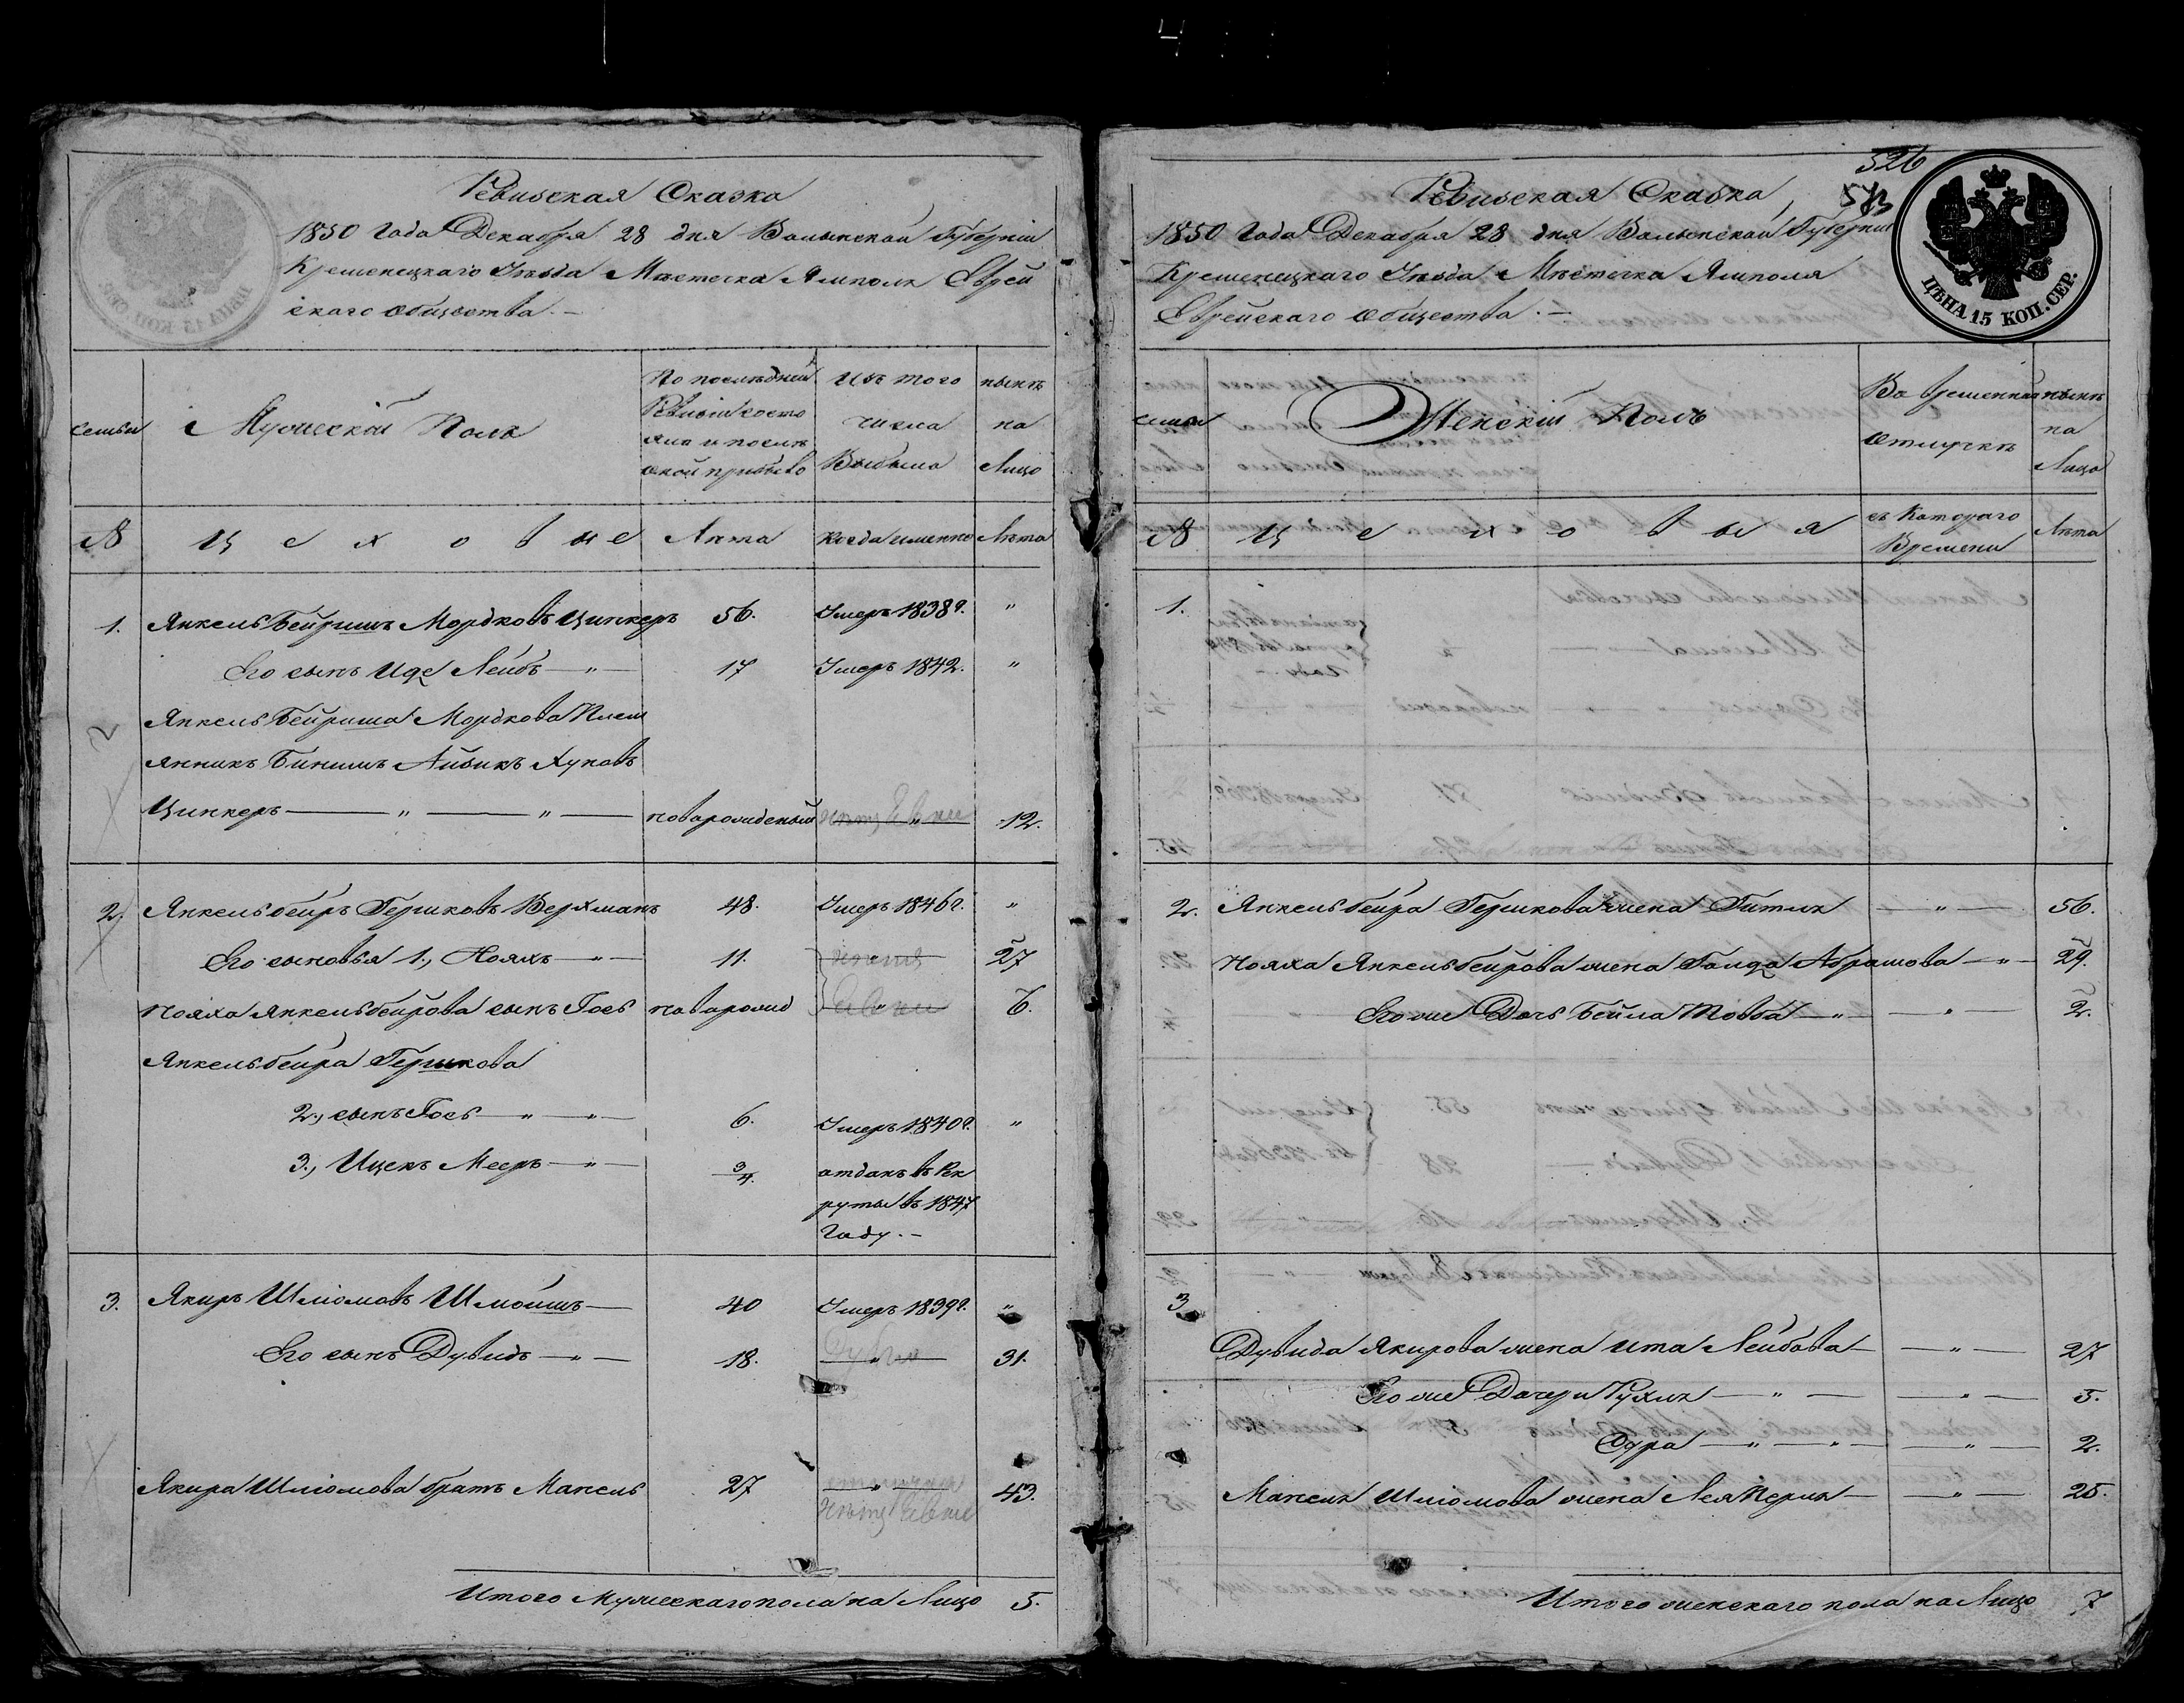 Ревизская Сказка
1850 года Декабря 28 дня Волынской Губерніи
Кременецкаго Уѣзда Мѣстечка Ямполя Еврей
скаго общества. –
семьи
Мужескій Полъ
По послѣдней
Ревизіи состо
яло и послѣ
оной прибыло
Изъ того
числа
Выбыло
нынѣ
на
Лицо
№
Ц е х о в ы е
Лѣта
когда именно
Лѣта
1. Янкель Бейришъ Мордковъ Цинкеръ 56. Умеръ 1838 г. "
Его сынъ Иде Лейбъ — " — 17 Умеръ 1842. "
2
Янкель Бейриша Мордкова Плем
янникъ Бинишъ Айзикъ
Цинкеръ — " — " — новорожденый " 12.
2. Янкельбейръ Гершковъ Верхманъ 48. Умеръ 1846 г. "
Его сыновья 1., Нояхъ — " — 11. 27
Нояха Янкельбейрова сынъ Гось новорожд " 6.
Янкельбейра Гершкова
2., сынъ Гось — " — " — 6. Умеръ 1840 г. "
3., Ицекъ Мееръ — " — 3/4. отданъ въ Рек
руты въ 1847
Году. –
3. Якиръ Шліомовъ Шмойшъ — 40 Умеръ 1839 г. "
Его сынъ Дувидъ — " — 18. " 31.
Якира Шліомова братъ Манель 27 " 43.
Итого Мужескаго пола на Лицо 5.
526
573
ЦѢНА 15 КОП. СЕР.
Ревизская Сказка
1850 Года Декабря 28 дня Волынской Губерніи
Кременецкаго Уѣзда Мѣстечка Ямполя
Еврейскаго общества. –
семьи
Женскій Полъ
Во временной
отлучкѣ
нынѣ
на
Лицо
№
Ц е х о в ы я
съ Котораго
Времени
Лѣта
1.
2. Янкельбейра Гершкова жена Гитля — " — 56.
Нояха Янкельбейрова жена Абрамова — " — 29.
Его же Дочь Бейла Товба — " — " — 2.
3
Дувида Якирова жена Ита Лейбова — " — 27
Его же Дочери Рухля — " — " — 5.
Сура — " — " — " — 2.
Манеля Шліомова жена Лея Перля — " — 25.
Итого женскаго пола на Лицо 7